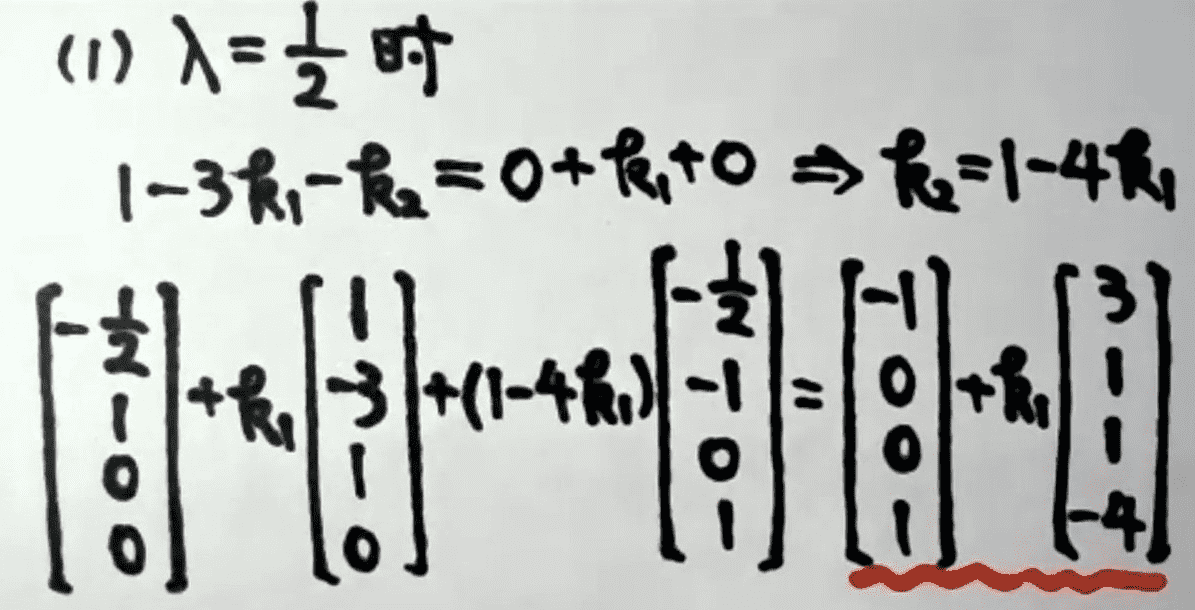 (1) λ=1/2 时
1-3k₁-k₂=0+k₁+0 ⇒ k₂=1-4k₁
[-1/2, 1, 0, 0] +k₁ [1, -3, 1, 0] +(1-4k₁) [-1/2, -1, 0, 1] = [-1, 0, 0, 1] +k₁ [3, 1, 1, -4]